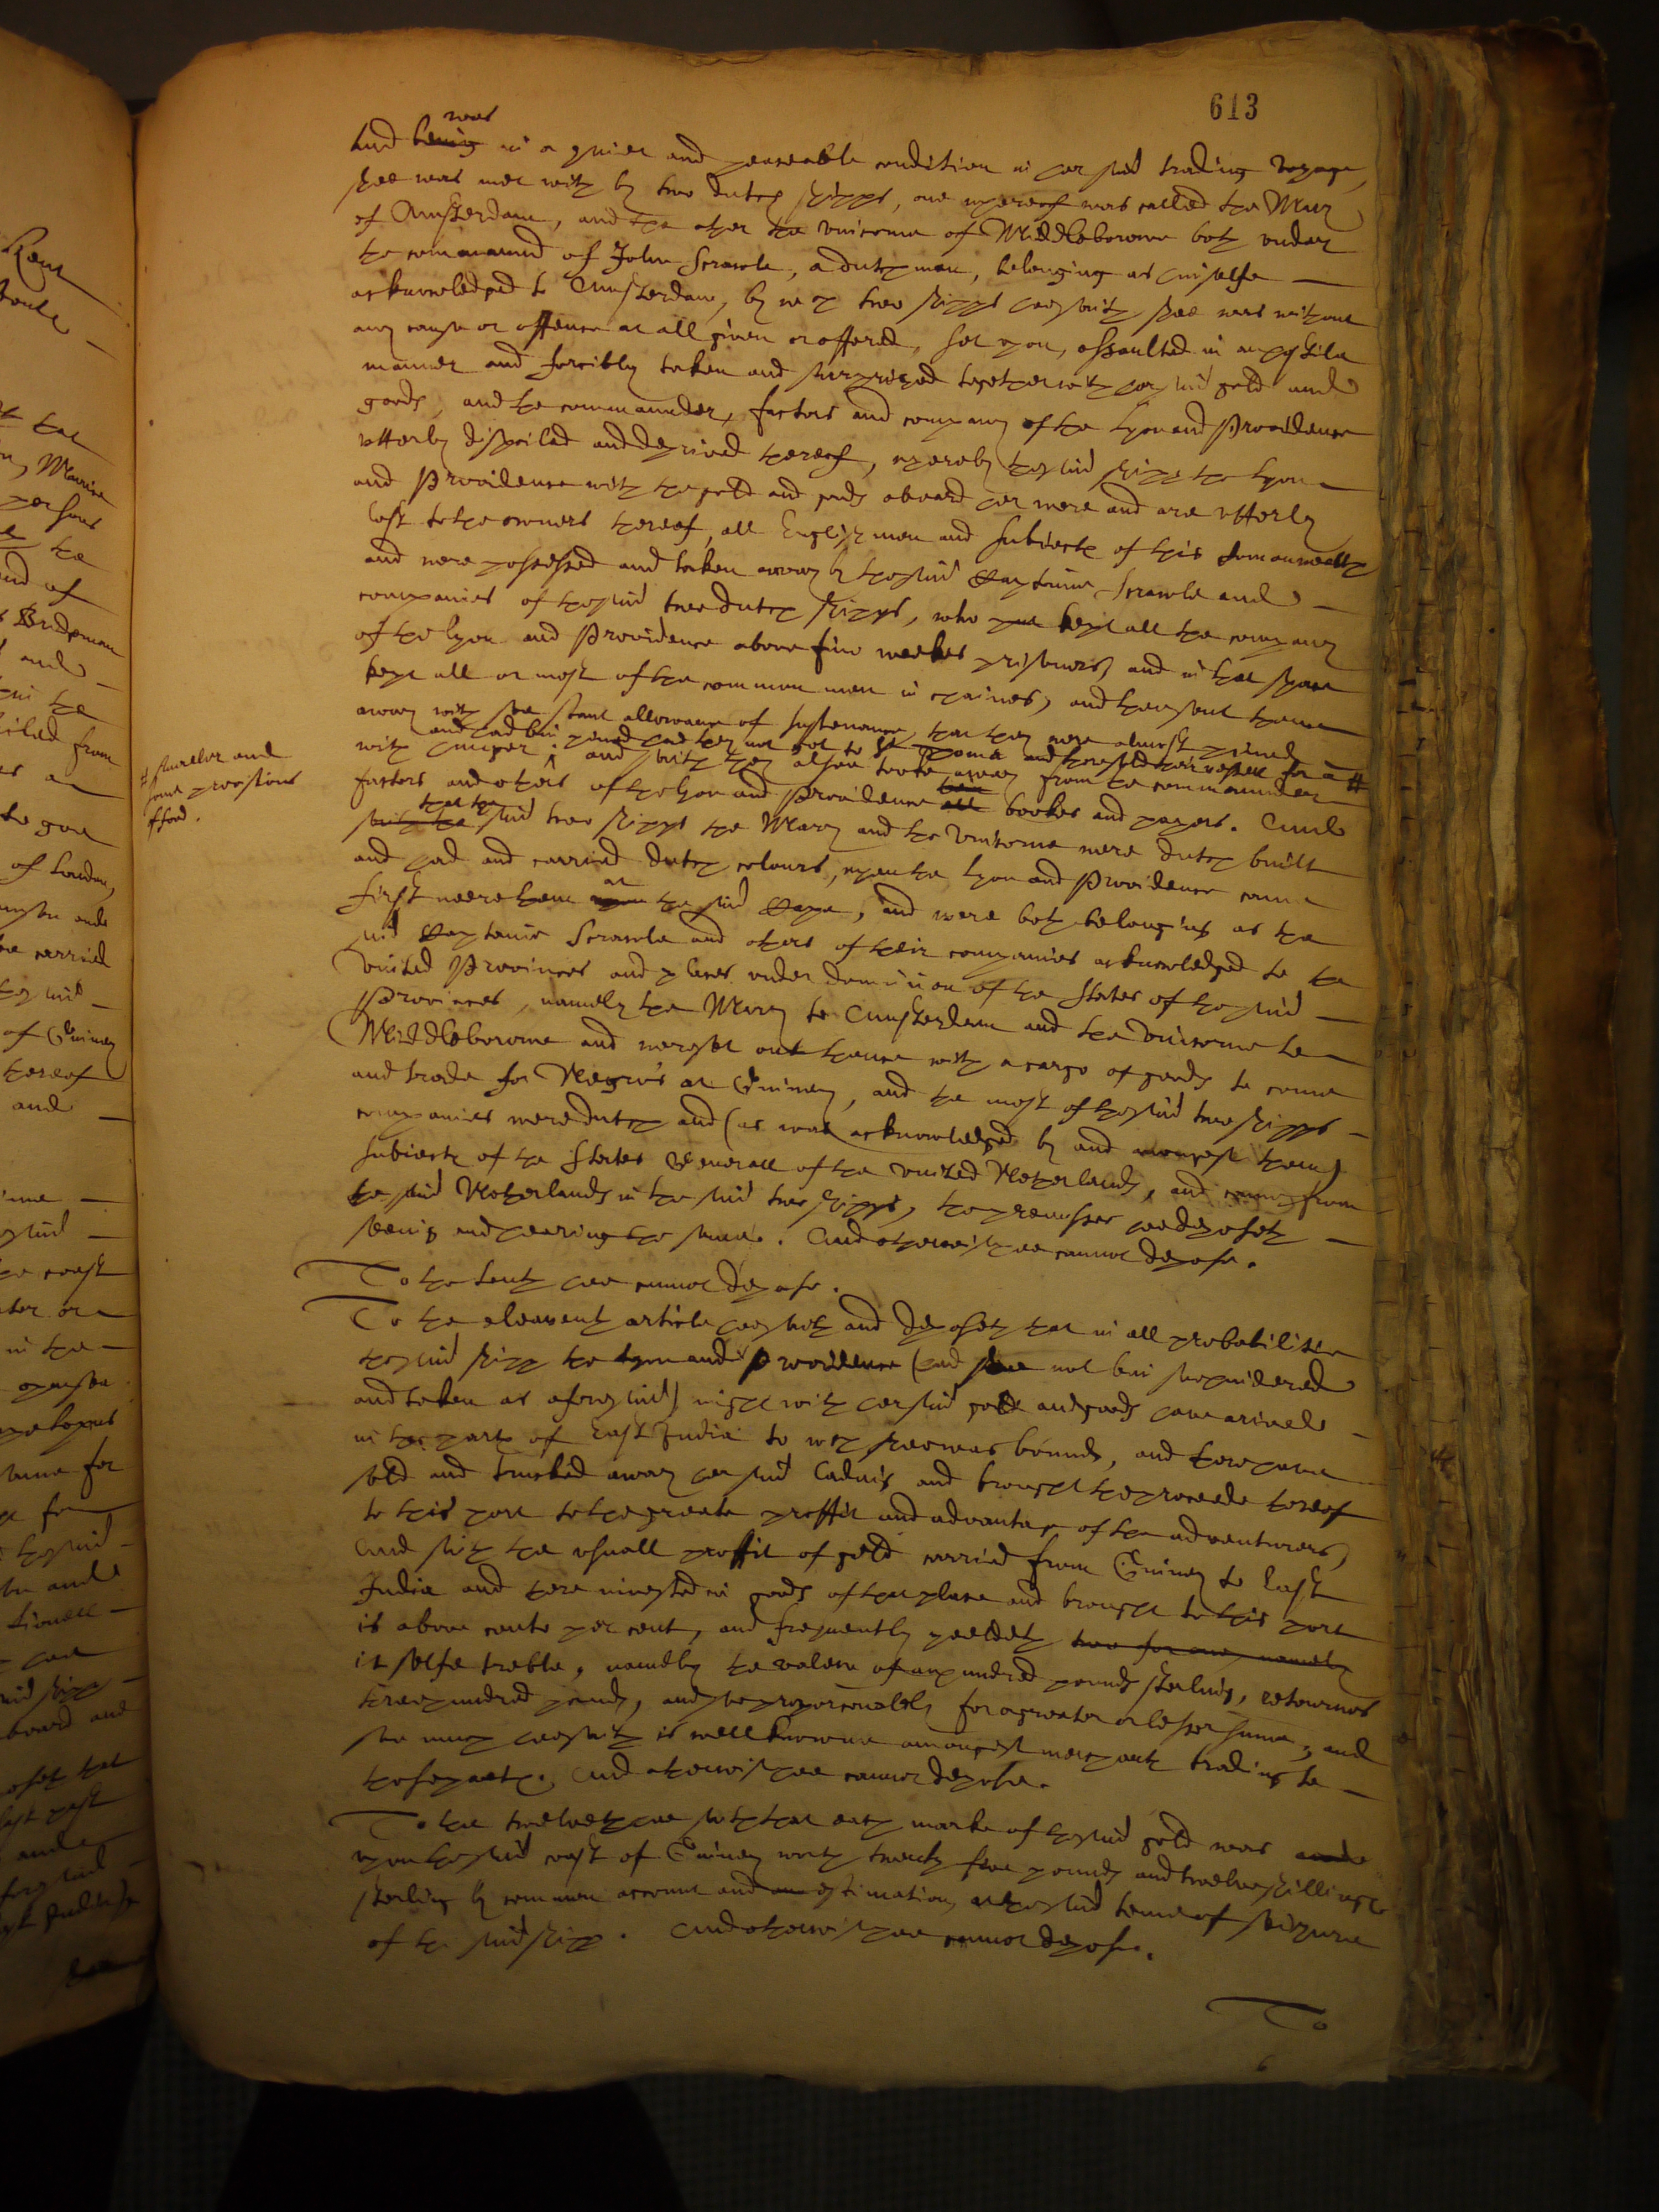 613
was
And being in a quiet and peaceable condition in her said trading voyage,
shee was met with by two dutch shipps, one whereof was called the Mary
of Amsterdam, and the other the Unicorne of Middleborowe both under
the command of John Scravele, a dutchman, belonging as himselfe
acknowledged to Amsterdam, by wch two shipps hee saith shee was without
any cause or offence at all given or offered, set upon, assaulted in an hostile
manner and forcibly taken and surprized together with her said gold and
goods, and the commander, factors and company of the Lyon and Providence
utterly dispoiled and deprived thereof, whereby the said shipp the Lyon
and Providence with the gold and goods aboard her were and are utterly
lost to the owners thereof, all Englishmen and subiects of this Comonwealth
and were possessed and taken away by the said Captaine Scravele and
companies of the said two dutch shipps, who kept all the company
of the Lyon and Providence above five weekes prisoners, and in that space
kept all or most of the common men in chaines, and then sent them
away with soe scant allowance of sustenance, that they were almost pined
and had bin pined had they not got to St Thome and there sold their vessell for a #
with hunger, and saith they alsoe tooke away from the commander
factors and others of the Lyon and Providence all bookes and papers. And
# smaller and
some provisions
that the
saith the said two shipps the Mary and the Unicorne were dutch built
and had and carried dutch colours, when the Lyon and Providence came
at
first neere them upon the said Cape, and were both belonging as the
said Captaine Scravele and others of their companies acknowledged to the
United Provinces and places under dominion of the States of the said
Provinces, namely the Mary to Amsterdam and the Unicorne to
Middleborowe and were set out thence with a cargo of goods to come
and trade for Negro's at Guiney, and the most of the said two shipps
companies were dutch and (as was acknowledged by and amongst them)
subiects of the States Generall of the United Netherlands, and came from
the said Netherlands in the said two shipps, the premisses hee deposeth
seeing and hearing the same. And otherwise hee cannot depose.
To the tenth hee cannot depose.
To the eleaventh article hee saith and deposeth that in all probabilitie
the said shipp the Lyon and Providence (had shee not bin surprised
and taken as aforesaid) might with her said gold and goods have arived
in the parts of East India to wch shee was bound, and there have
sold and trucked away her said lading and brought the proceede thereof
to this port to the greate proffit and advantage of the adventurers,
And saith the usuall proffit of gold carried from Guiney to East
India and there invested in goods of that place and brought to this port
is above cento per cent, and frequently yeeldeth two for one, namely
it selfe treble, namely the valew of an hundred pounds sterling, retournes
three hundred pounds, and soe proportionablely for a greater or lesser summe, and
soe much hee saith is well knowne amongest merchants trading to
those parts. And otherwise hee cannot depose.
To the twelveth hee saith that each marke of the said gold was
upon the said coast of Guiney worth twenty five pounds and twelve shillings
sterling by common account and estimation, at the said time of seizure
of the said shipp. And otherwise hee cannot depose.
To